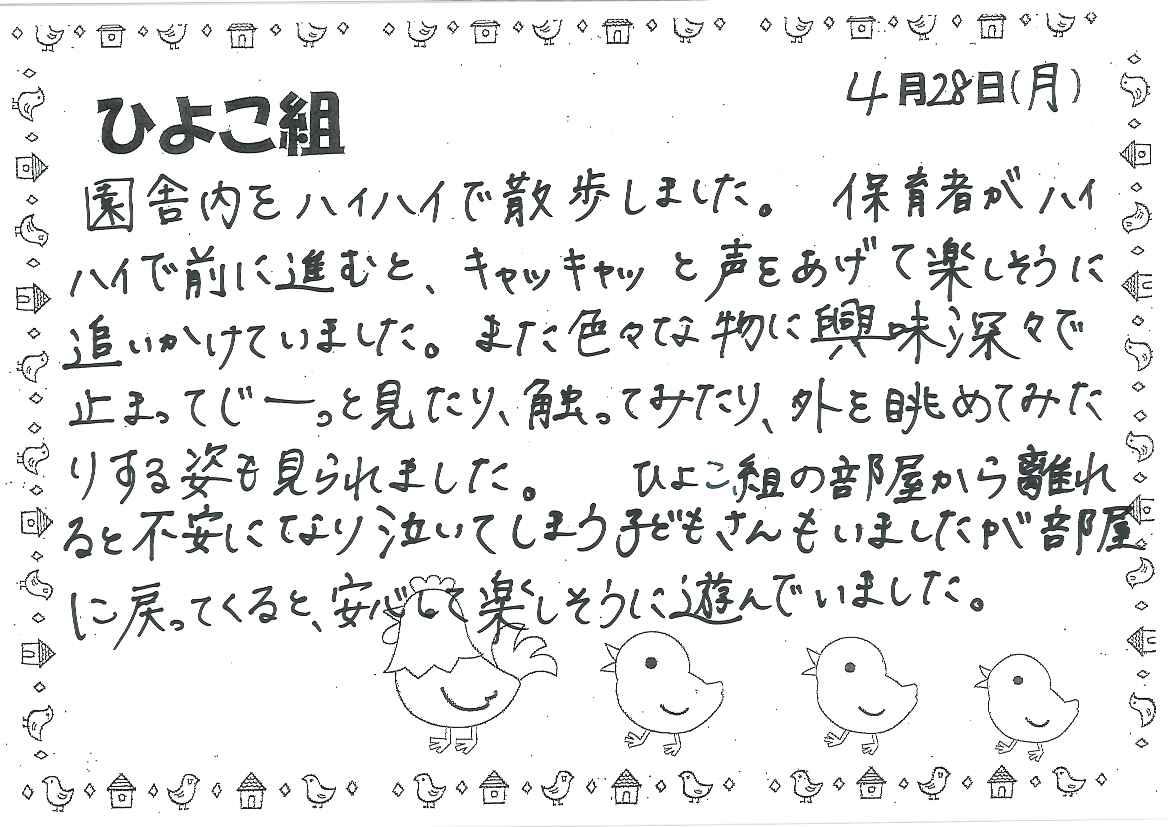 4月28日(月)
ひよこ組
園舎内をハイハイで散歩しました。 保育者がハイ
ハイで前に進むと、キャッキャッと声をあげて楽しそうに
追いかけていました。また色々な物に興味深々で
止まってじーっと見たり、触ってみたり、外を眺めてみた
りする姿も見られました。 ひよこ組の部屋から離れ
ると不安になり泣いてしまう子どもさんもいましたが部屋
に戻ってくると、安心して楽しそうに遊んでいました。